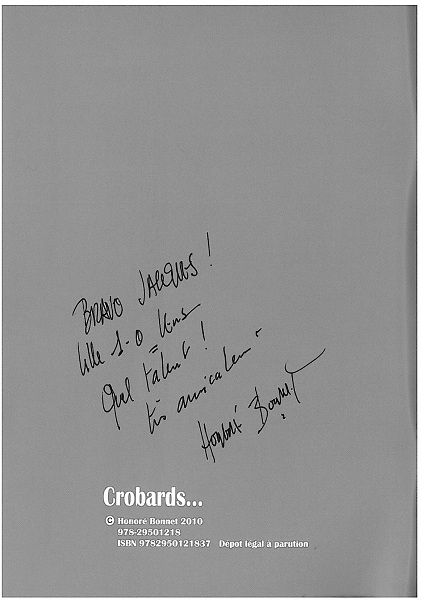 BRAVO JACQUES !
Lille 1-0 Lens
Quel talent !
très amicalem.
Honoré Bonnet
Crobards...
© Honoré Bonnet 2010
978-29501218
ISBN 9782950121837 Dépot légal à parution